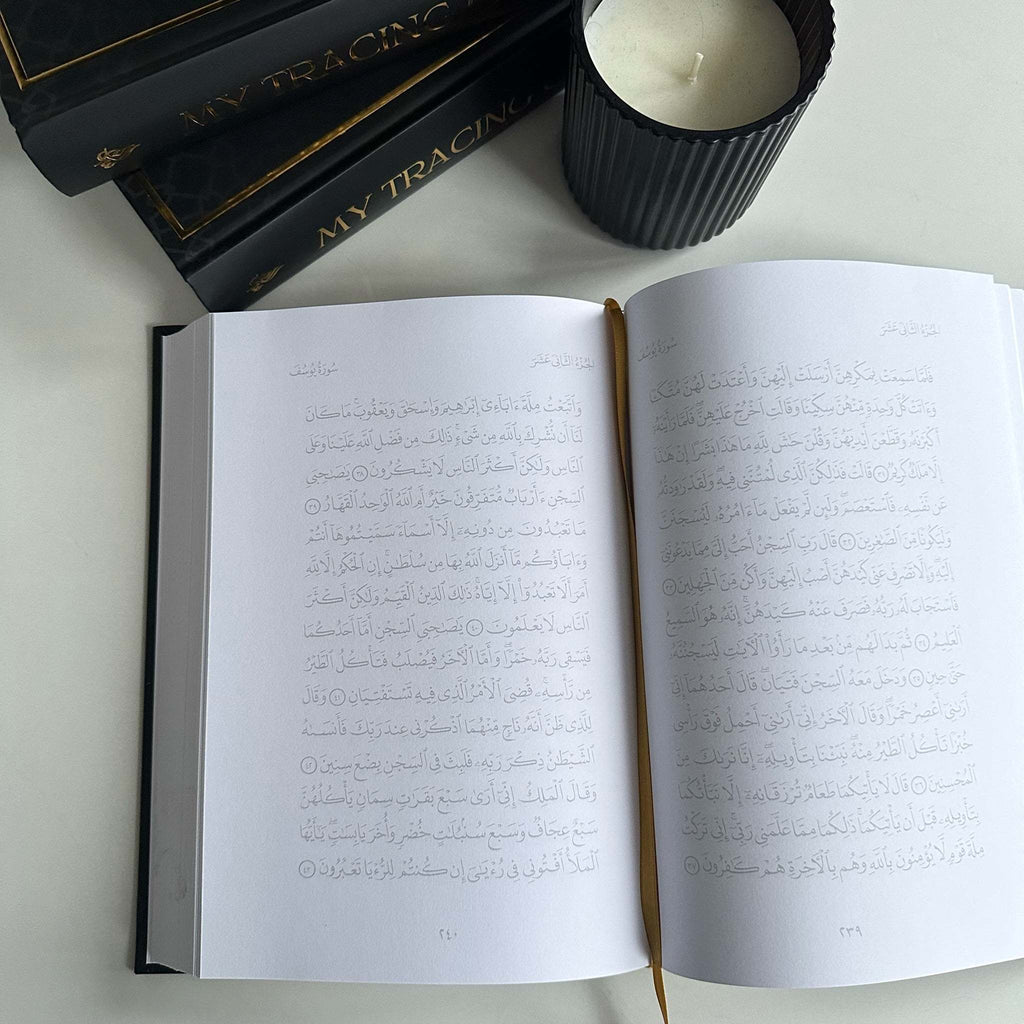 MY TRACING
MY TRACING
الجُزْءُ الثَّانِي عَشَرَ
سُورَةُ يُوسُفَ
فَلَمَّا سَمِعَتْ بِمَكْرِهِنَّ أَرْسَلَتْ إِلَيْهِنَّ وَأَعْتَدَتْ لَهُنَّ مُتَّكَـًٔا
وَءَاتَتْ كُلَّ وَٰحِدَةٍ مِّنْهُنَّ سِكِّينًا وَقَالَتِ ٱخْرُجْ عَلَيْهِنَّ ۖ فَلَمَّا رَأَيْنَهُۥٓ
أَكْبَرْنَهُۥ وَقَطَّعْنَ أَيْدِيَهُنَّ وَقُلْنَ حَٰشَ لِلَّهِ مَا هَٰذَا بَشَرًا إِنْ هَٰذَآ
إِلَّا مَلَكٌ كَرِيمٌ ٣١ قَالَتْ فَذَٰلِكُنَّ ٱلَّذِى لُمْتُنَّنِى فِيهِ ۖ وَلَقَدْ رَٰوَدتُّهُۥ
عَن نَّفْسِهِۦ فَٱسْتَعْصَمَ ۖ وَلَئِن لَّمْ يَفْعَلْ مَآ ءَامُرُهُۥ لَيُسْجَنَنَّ
وَلَيَكُونًا مِّنَ ٱلصَّٰغِرِينَ ٣٢ قَالَ رَبِّ ٱلسِّجْنُ أَحَبُّ إِلَىَّ مِمَّا يَدْعُونَنِىٓ
إِلَيْهِ ۖ وَإِلَّا تَصْرِفْ عَنِّى كَيْدَهُنَّ أَصْبُ إِلَيْهِنَّ وَأَكُن مِّنَ ٱلْجَٰهِلِينَ ٣٣
فَٱسْتَجَابَ لَهُۥ رَبُّهُۥ فَصَرَفَ عَنْهُ كَيْدَهُنَّ ۚ إِنَّهُۥ هُوَ ٱلسَّمِيعُ
ٱلْعَلِيمُ ٣٤ ثُمَّ بَدَا لَهُم مِّنۢ بَعْدِ مَا رَأَوُا۟ ٱلْـَٔايَٰتِ لَيَسْجُنُنَّهُۥ
حَتَّىٰ حِينٍ ٣٥ وَدَخَلَ مَعَهُ ٱلسِّجْنَ فَتَيَانِ ۖ قَالَ أَحَدُهُمَآ إِنِّىٓ
أَرَىٰنِىٓ أَعْصِرُ خَمْرًا ۖ وَقَالَ ٱلْـَٔاخَرُ إِنِّىٓ أَرَىٰنِىٓ أَحْمِلُ فَوْقَ رَأْسِى
خُبْزًا تَأْكُلُ ٱلطَّيْرُ مِنْهُ ۖ نَبِّئْنَا بِتَأْوِيلِهِۦٓ ۖ إِنَّا نَرَىٰكَ مِنَ
ٱلْمُحْسِنِينَ ٣٦ قَالَ لَا يَأْتِيكُمَا طَعَامٌ تُرْزَقَانِهِۦٓ إِلَّا نَبَّأْتُكُمَا
بِتَأْوِيلِهِۦ قَبْلَ أَن يَأْتِيَكُمَا ۚ ذَٰلِكُمَا مِمَّا عَلَّمَنِى رَبِّىٓ ۚ إِنِّى تَرَكْتُ
مِلَّةَ قَوْمٍ لَّا يُؤْمِنُونَ بِٱللَّهِ وَهُم بِٱلْـَٔاخِرَةِ هُمْ كَٰفِرُونَ ٣٧
٢٣٩
الجُزْءُ الثَّانِي عَشَرَ
سُورَةُ يُوسُفَ
وَٱتَّبَعْتُ مِلَّةَ ءَابَآءِىٓ إِبْرَٰهِيمَ وَإِسْحَٰقَ وَيَعْقُوبَ ۚ مَا كَانَ
لَنَآ أَن نُّشْرِكَ بِٱللَّهِ مِن شَىْءٍ ۚ ذَٰلِكَ مِن فَضْلِ ٱللَّهِ عَلَيْنَا وَعَلَى
ٱلنَّاسِ وَلَٰكِنَّ أَكْثَرَ ٱلنَّاسِ لَا يَشْكُرُونَ ٣٨ يَٰصَٰحِبَىِ
ٱلسِّجْنِ ءَأَرْبَابٌ مُّتَفَرِّقُونَ خَيْرٌ أَمِ ٱللَّهُ ٱلْوَٰحِدُ ٱلْقَهَّارُ ٣٩
مَا تَعْبُدُونَ مِن دُونِهِۦٓ إِلَّآ أَسْمَآءً سَمَّيْتُمُوهَآ أَنتُمْ
وَءَابَآؤُكُم مَّآ أَنزَلَ ٱللَّهُ بِهَا مِن سُلْطَٰنٍ ۚ إِنِ ٱلْحُكْمُ إِلَّا لِلَّهِ
أَمَرَ أَلَّا تَعْبُدُوٓا۟ إِلَّآ إِيَّاهُ ۚ ذَٰلِكَ ٱلدِّينُ ٱلْقَيِّمُ وَلَٰكِنَّ أَكْثَرَ
ٱلنَّاسِ لَا يَعْلَمُونَ ٤٠ يَٰصَٰحِبَىِ ٱلسِّجْنِ أَمَّآ أَحَدُكُمَا
فَيَسْقِى رَبَّهُۥ خَمْرًا ۖ وَأَمَّا ٱلْـَٔاخَرُ فَيُصْلَبُ فَتَأْكُلُ ٱلطَّيْرُ
مِن رَّأْسِهِۦ ۚ قُضِىَ ٱلْأَمْرُ ٱلَّذِى فِيهِ تَسْتَفْتِيَانِ ٤١ وَقَالَ
لِلَّذِى ظَنَّ أَنَّهُۥ نَاجٍ مِّنْهُمَا ٱذْكُرْنِى عِندَ رَبِّكَ فَأَنسَىٰهُ
ٱلشَّيْطَٰنُ ذِكْرَ رَبِّهِۦ فَلَبِثَ فِى ٱلسِّجْنِ بِضْعَ سِنِينَ ٤٢
وَقَالَ ٱلْمَلِكُ إِنِّىٓ أَرَىٰ سَبْعَ بَقَرَٰتٍ سِمَانٍ يَأْكُلُهُنَّ
سَبْعٌ عِجَافٌ وَسَبْعَ سُنۢبُلَٰتٍ خُضْرٍ وَأُخَرَ يَابِسَٰتٍ ۖ يَٰٓأَيُّهَا
ٱلْمَلَأُ أَفْتُونِى فِى رُءْيَٰىَ إِن كُنتُمْ لِلرُّءْيَا تَعْبُرُونَ ٤٣
٢٤٠